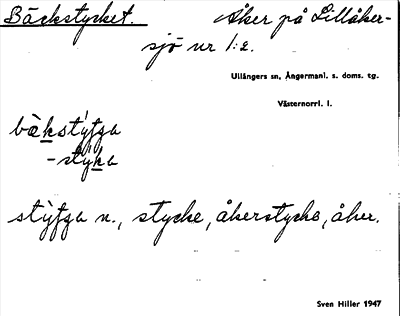 Bäckstycket. Åker på Lillåker-
sjö nr 1:2.
Ullångers sn, Ångermanl. s. doms. tg.
Västernorrl. l.
bäkstýtꞩa
-stýka
stýtꞩa n., stycke, åkerstycke, åker.
Sven Hiller 1947